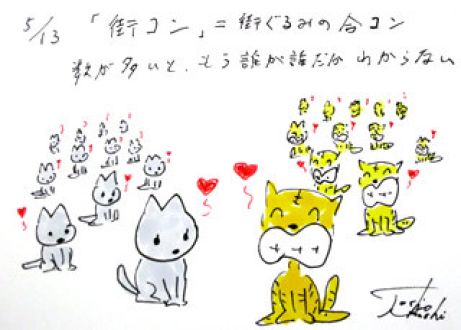 5/13 「街コン」＝街ぐるみの合コン
数が多いと、もう誰が誰だかわからない